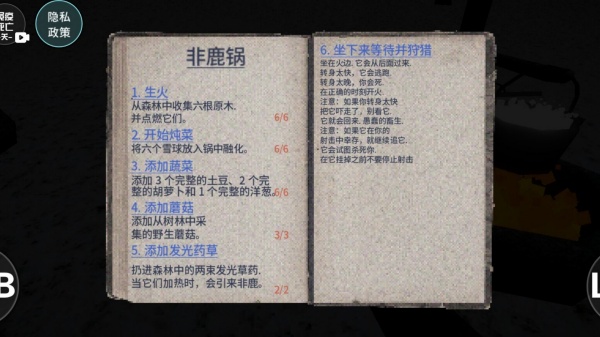 死亡
天-
隐私
政策
非鹿锅
1. 生火
从森林中收集六根原木.
并点燃它们。
6/6
2. 开始炖菜
将六个雪球放入锅中融化。
6/6
3. 添加蔬菜
添加 3 个完整的土豆、2 个完
整的胡萝卜和 1 个完整的洋葱。
6/6
4. 添加蘑菇
添加从树林中采
集的野生蘑菇。
3/3
5. 添加发光药草
扔进森林中的两束发光草药.
当它们加热时，会引来非鹿.
2/2
6. 坐下来等待并狩猎
坐在火边. 它会从后面过来.
转身太快，它会逃跑.
转身太晚，你会死.
在正确的时刻开火.
注意：如果你转身太快
把它吓走了，别看它.
它就会回来. 愚蠢的畜生.
注意：如果它在你的
射击中幸存，就继续追它.
它会试图杀死你.
在它挂掉之前不要停止射击
B
L